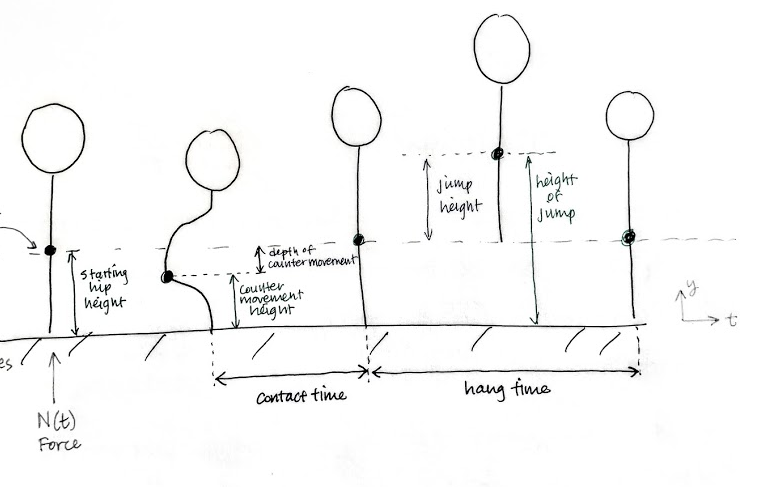 starting
hip
height
depth of
counter movement
counter
movement
height
jump
height
height
of
jump
y
t
es
contact time
hang time
N(t)
Force